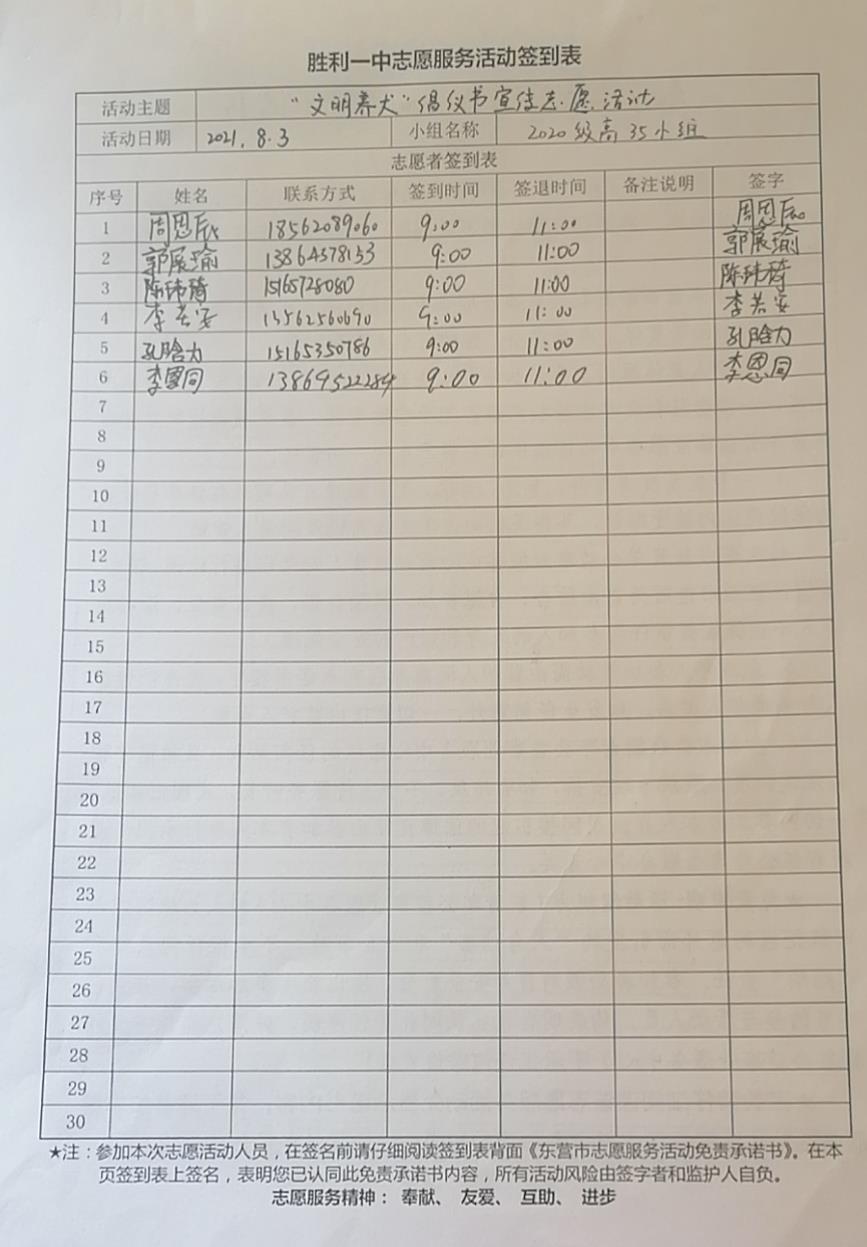 胜利一中志愿服务活动签到表
活动主题 "文明养犬"倡仪书宣传志愿活动
活动日期 2021.8.3 小组名称 2020级高35小组
志愿者签到表
序号 姓名 联系方式 签到时间 签退时间 备注说明 签字
1 周恩辰 18562089060 9:00 11:00 周恩辰
2 郭展瑜 13864578153 9:00 11:00 郭展瑜
3 陈玮琦 15165728080 9:00 11:00 陈玮琦
4 李若安 13562560690 9:00 11:00 李若安
5 孔晗力 15165350786 9:00 11:00 孔晗力
6 李恩同 13869522284 9:00 11:00 李恩同
7
8
9
10
11
12
13
14
15
16
17
18
19
20
21
22
23
24
25
26
27
28
29
30
★注：参加本次志愿活动人员，在签名前请仔细阅读签到表背面《东营市志愿服务活动免责承诺书》。在本
页签到表上签名，表明您已认同此免责承诺书内容，所有活动风险由签字者和监护人自负。
志愿服务精神： 奉献、 友爱、 互助、 进步